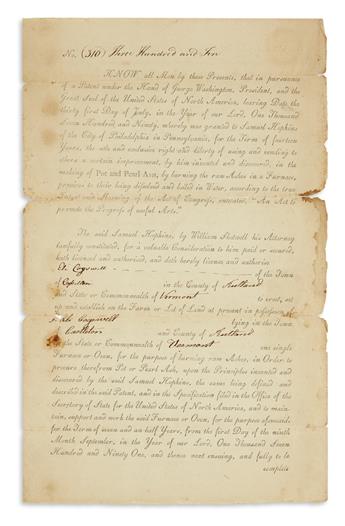 No. (310) Three Hundred and Ten
KNOW all Men by these Presents, that in pursuance
of a Patent under the Hand of George Washington, President, and the
Great Seal of the United States of North America, bearing Date the
thirty first Day of July, in the Year of our Lord, One Thousand
Seven Hundred and Ninety, whereby was granted to Samuel Hopkins
of the City of Philadelphia in Pennsylvania, for the Term of fourteen
Years, the sole and exclusive right and liberty of using and vending to
others a certain improvement, by him invented and discovered, in the
making of Pot and Pearl Ash, by burning the raw Ashes in a Furnace,
previous to their being dissolved and boiled in Water, according to the true
Intent and Meaning of the Act of Congress, entituled, "An Act to
promote the Progress of useful Arts."
The said Samuel Hopkins, by William his Attorney
lawfully constituted, for a valuable Consideration to him paid or secured,
hath licensed and authorized, and doth hereby license and authorize
Cogswell of the Town
of in the County of Rutland
and State or Commonwealth of Vermont to erect, set
up and establish on the Farm or Lot of Land at present in possession of
Cogswell lying in the Town
Castleton and County of Rutland
in the State or Commonwealth of Vermont one single
Furnace or Oven, for the purpose of burning raw Ashes, in Order to
procure therefrom Pot or Pearl Ash, upon the Principles invented and
discovered by the said Samuel Hopkins, the same being defined and
described in the said Patent, and in the Specification filed in the Office of the
Secretary of State for the United States of North America, and to main-
tain, support and work the said Furnace or Oven, for the purpose aforesaid,
for the Term of seven and an half Years, from the first Day of the ninth
Month September, in the Year of our Lord, One Thousand Seven
Hundred and Ninety One, and thence next ensuing, and fully to be
complete